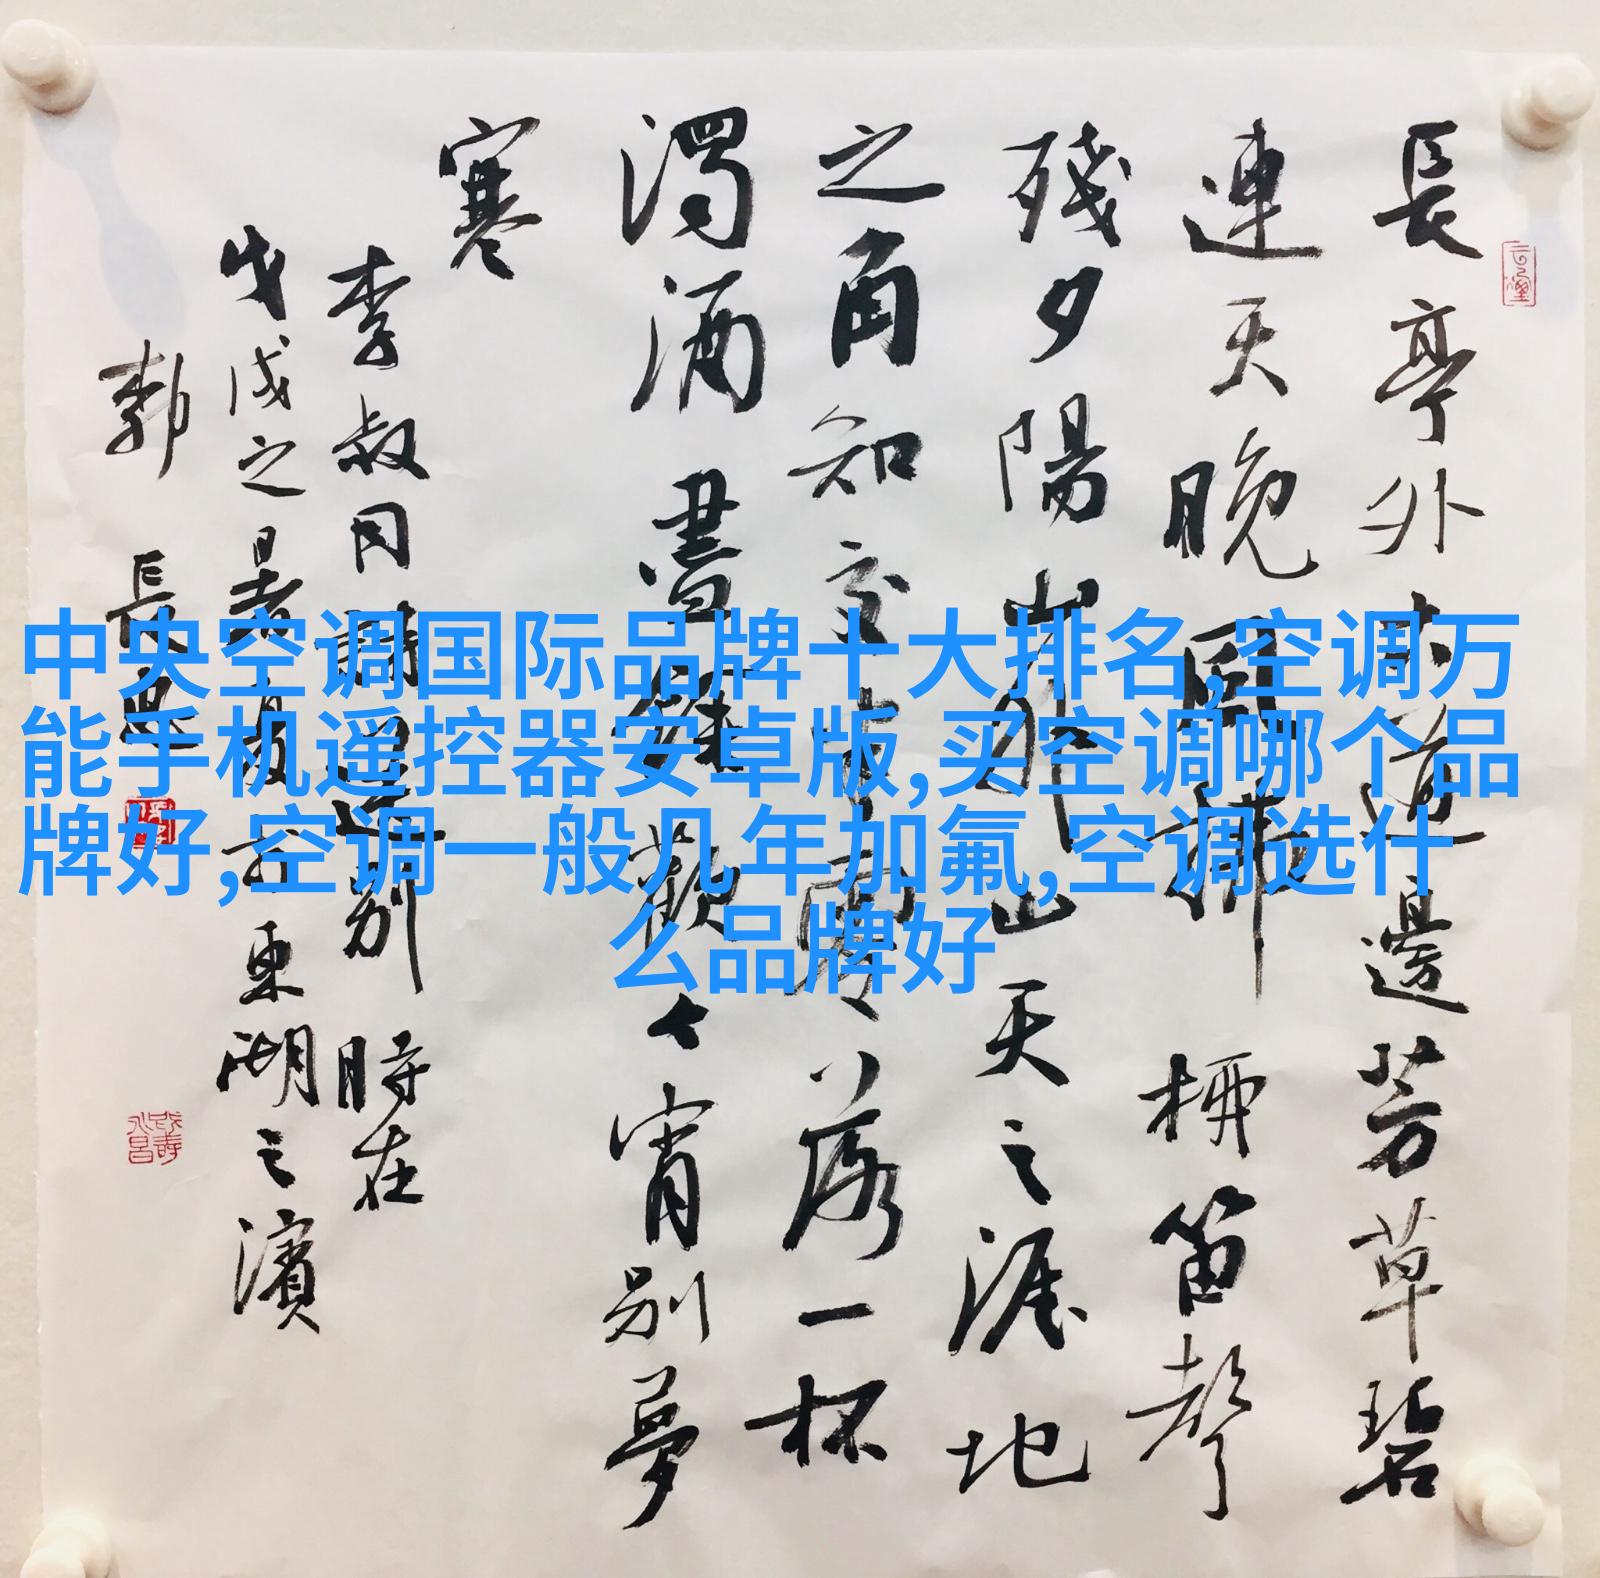 長亭外古道邊芳草碧
連天晚風拂柳笛聲
殘夕陽山外山天之涯地
之角知交半零落一杯
濁酒盡餘歡今宵別夢
寒
李叔同詩送別 時在
戊戌之暑夏于東湖之濱
長
中央空调国际品牌十大排名,空调万
能手机遥控器安卓版,买空调哪个品
牌好,空调一般几年加氟,空调选什
么品牌好